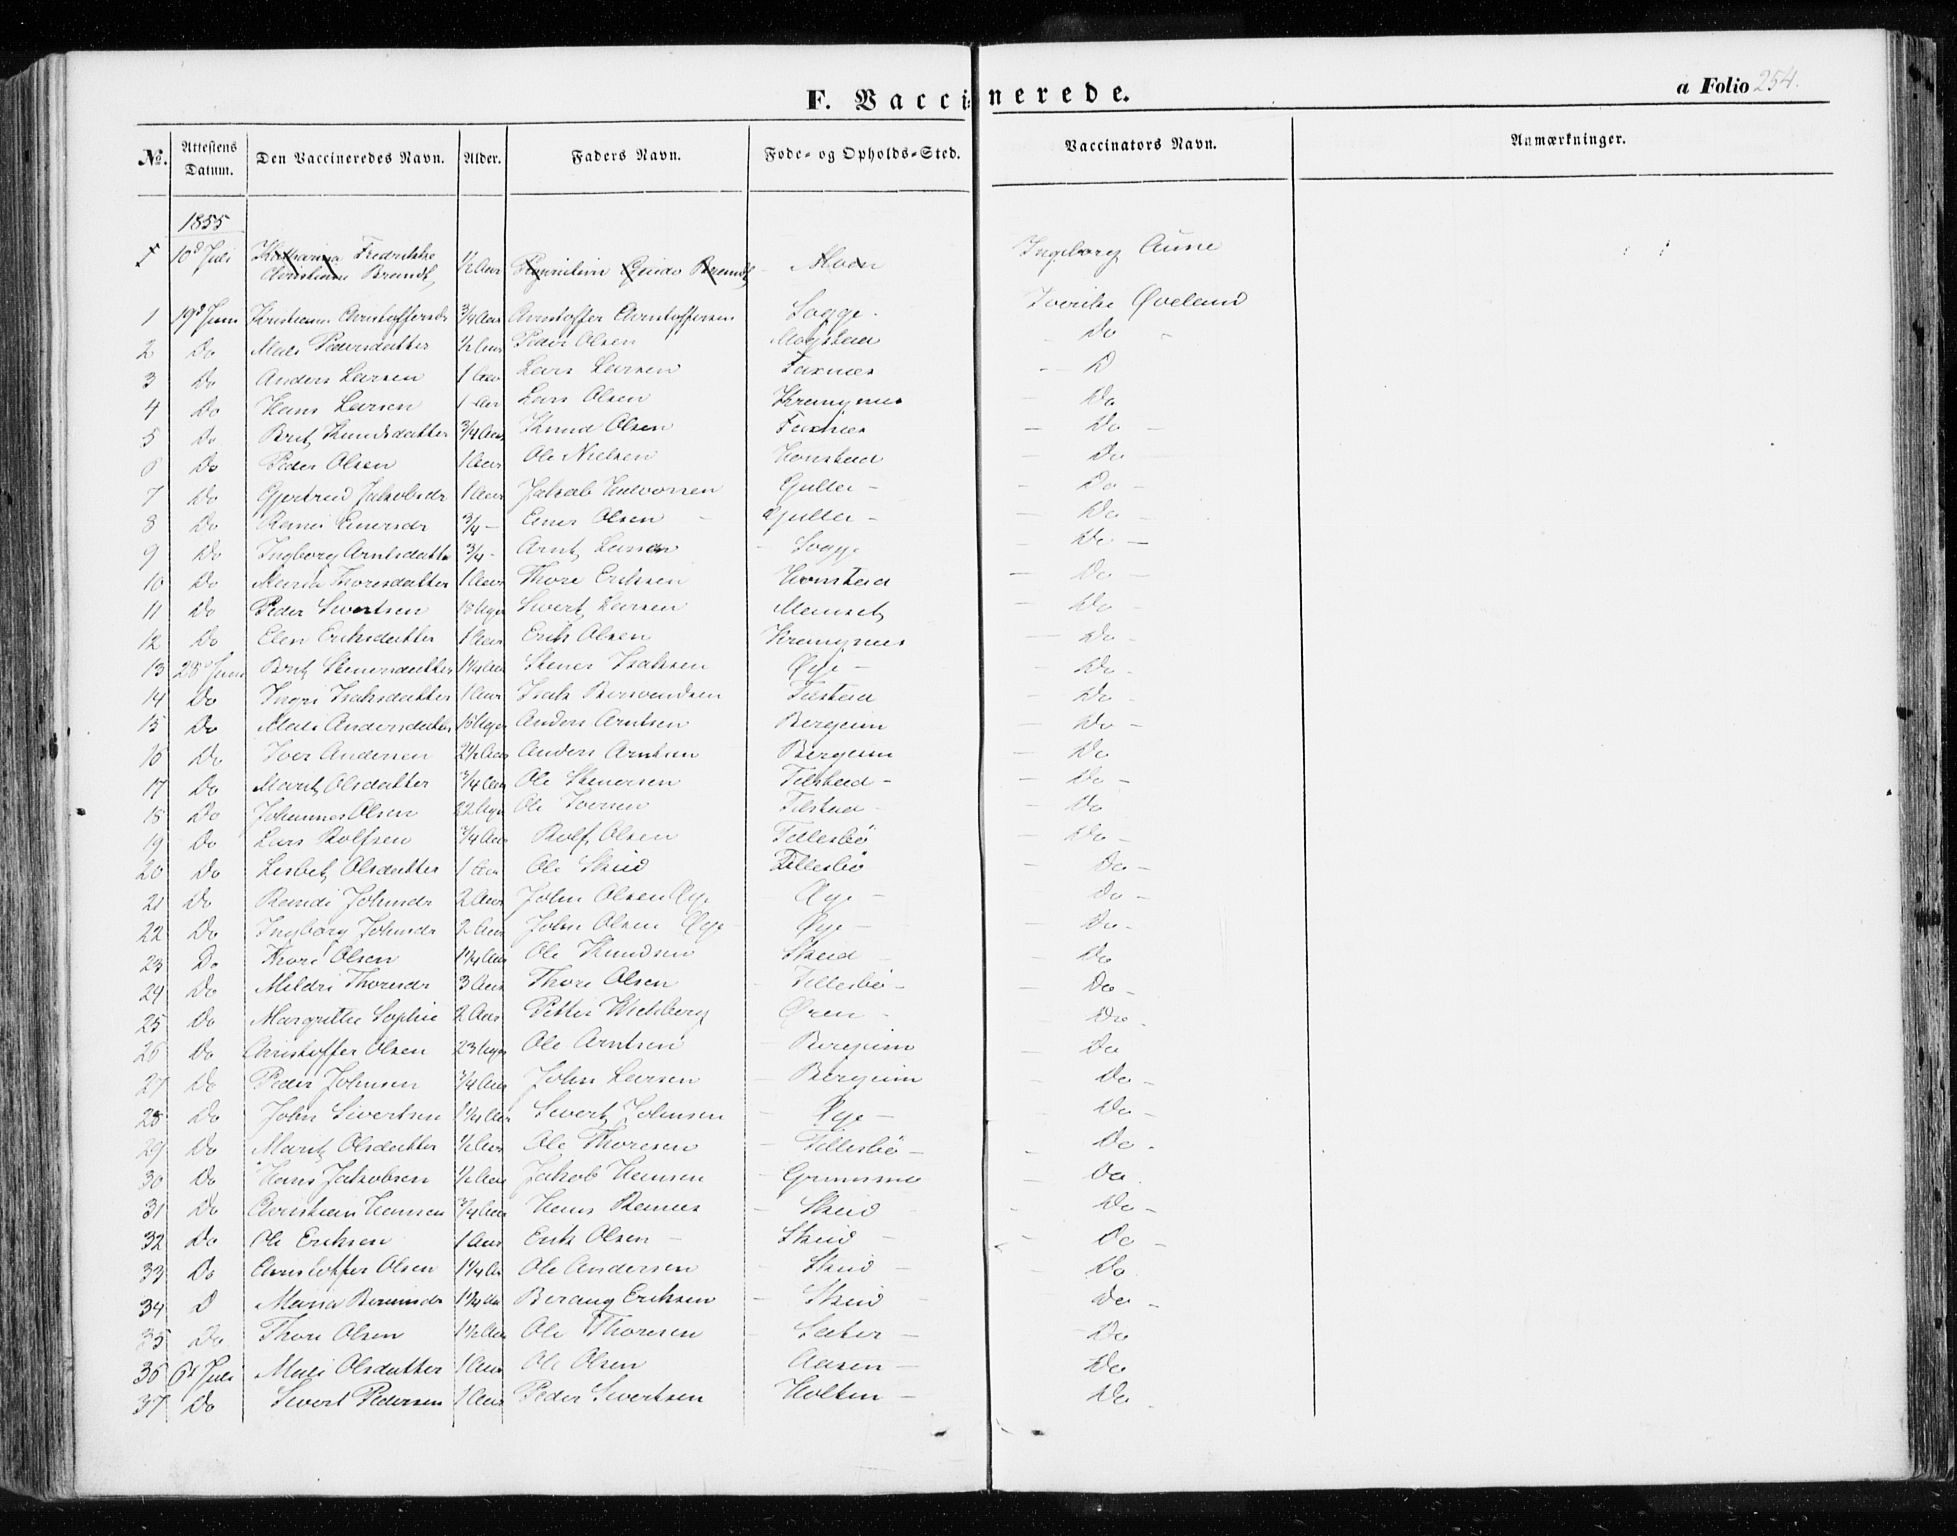 F. Vaccinerede.
a Folio 254.
No. Attestens Datum. Den Vaccineredes Navn. Alder. Faders Navn. Føde- og Opholds-Sted. Vaccinators Navn. Anmærkninger.
1855
1 10d Juli Katharina Fredrikke Christiane Brandt, 1/2 Aar Guido Brandt Moen Ingeborg Aune
1 19d Juni 3/4 Aar Christoffer Christoffersen Sogge Øveland
2 Do Mali Pedersdatter 1/2 Aar Peder Olsen Mogstad Do
3 Do Anders Larsen 1 Aar Lars Larsen Foxnæs D
4 Do Hans Larsen 1 Aar Lars Olsen Do
5 Do Brit Knudsdatter 3/4 Aar Knud Olsen Foxnæs Do
6 Do Peder Olsen 1 Aar Ole Nielsen Honstad Do
7 Do Gjertrud Jakobsdr 1 Aar Jakob Halvorsen Do
8 Do Einersdr 3/4 - Einer Olsen Do
9 Do Ingborg Arntsdatter 3/4 - Arnt Sogge Do
10 Do Maria Thoresdatter 1 Aar Thore Eriksen Honstad Do
11 Do Peder Sivertsen 18 Uger Sivert Larsen Do
12 Do Elen Eriksdatter 1 Aar Erik Olsen Do
13 28d Juni Brit Stenersdatter 1 1/4 Aar Stener Isaksen Øye - Do
14 Do Ingri Isaksdatter 1 Aar Isak Do
15 Do Mali Andersdatter Anders Arntsen Bergeim Do
16 Do Iver Andersen 2 1/2 Aar Anders Arntsen Bergeim Do
17 Do Marit Olsdatter 3/4 Aar Ole Stenersen Do
18 Do Johannes Olsen 22 Uger Ole Iversen Do
19 Do Lars Rolfsen 3/4 Aar Rolf Olsen Tillesbö Do
20 Do Lisbet Olsdatter 1 Aar Ole Skeid Tillesbö Do
21 Do Randi Johnsdr 2 Aar John Olsen Øye Øye - Do
22 Do Ingborg Johnsdr 2 Aar John Olsen Øye Øye - Do
23 Do Thore Olsen 1 1/4 Aar Ole Knudsen Skeid Do
24 Do Mildri Thoresdr 3 Aar Thore Olsen Tillesbö - Do
25 Do Margrethe Sophie 2 Aar Petter Wichberg Øren Do
26 Do Christoffer Olsen 23 Uger Ole Arntsen Bergeim Do
27 Do Peder Johnsen 3/4 Aar John Larsen Bergeim Do
28 Do John Sivertsen 1 1/4 Aar Sivert Johnsen Øye - Do
29 Do Marit Olsdatter 1/2 Aar Ole Thoresen Tillesbö - Do
30 Do Hans Jakobsen 1/2 Aar Jakob Hansen Do
31 Do Christian Hansen 3/4 Aar Hans Skeid Do
32 Do Ole Eriksen 1 Aar Erik Olsen Skeid Do
33 Do Christoffer Olsen 1 1/4 Ar Ole Andersen Skeid Do
34 D Maria 1 1/4 Aar Eriksen Skeid Do
35 Do Thore Olsen 1 1/2 Aar Ole Thoresen Sæter - Do
36 6d Juli Mali Olsdatter 1 Aar Ole Olsen Aasen - Do
37 Do Sivert Pedersen 1 Aar Peder Sivertsen Holten - Do